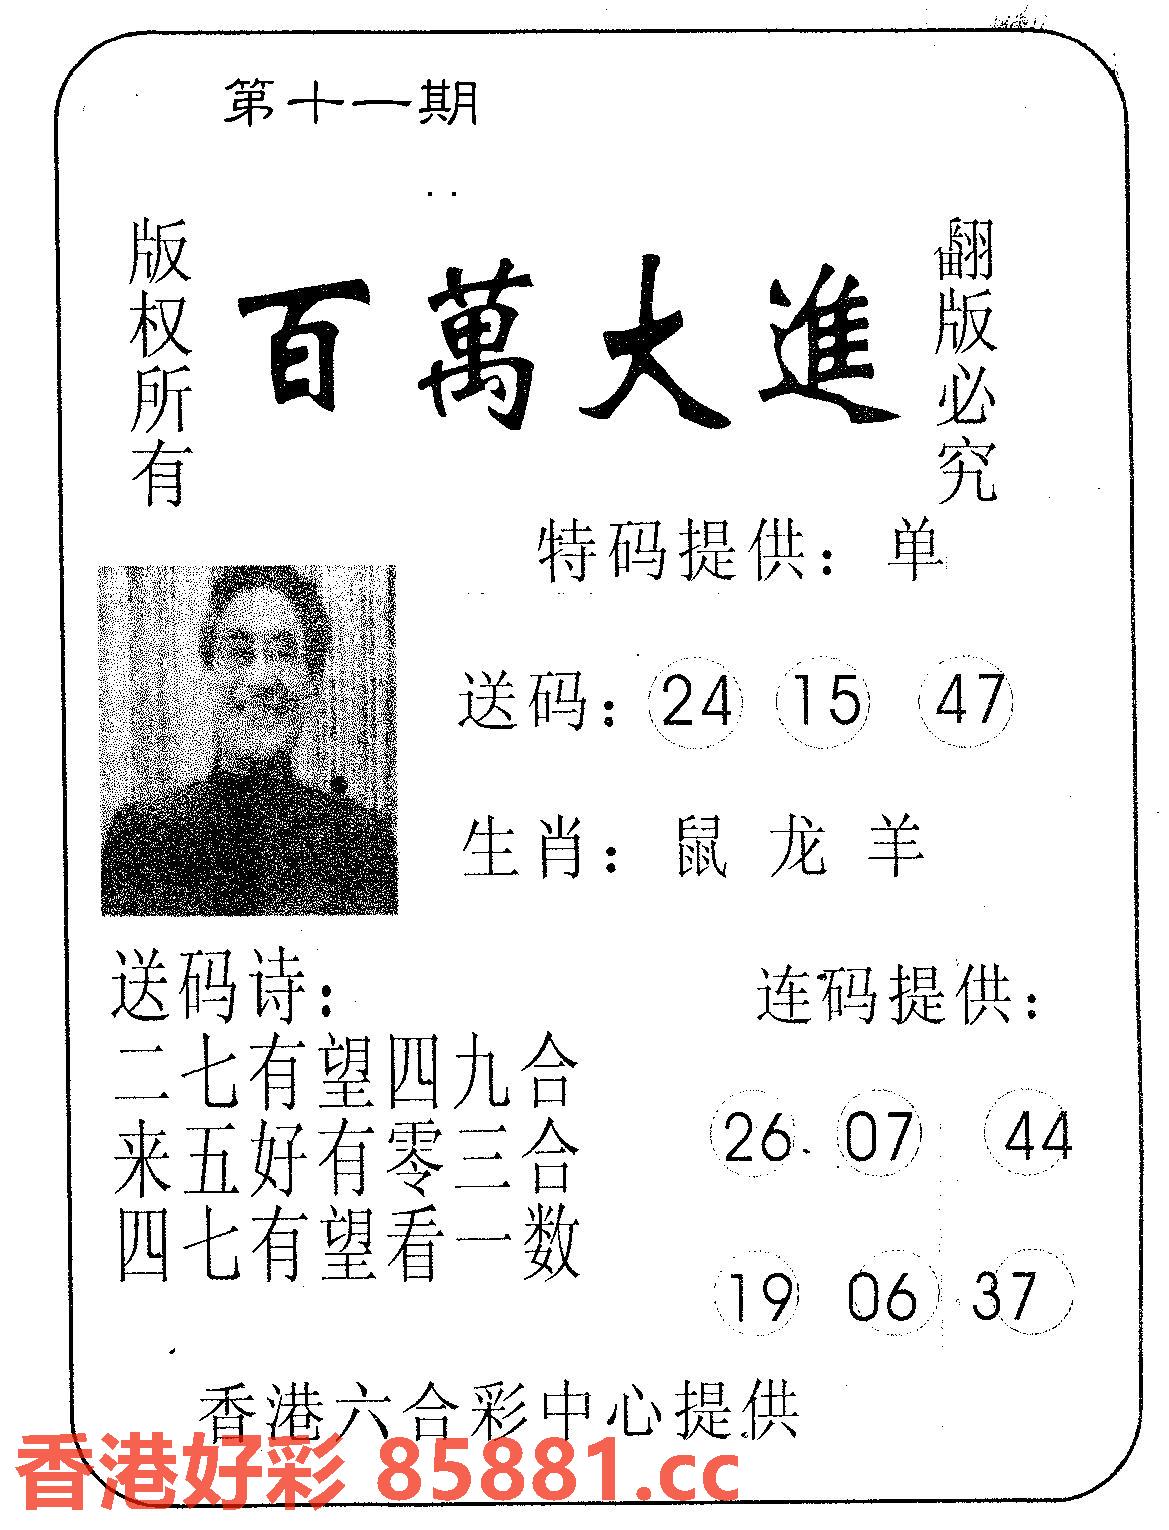 第十一期
版权所有
百萬大進
翻版必究
特码提供：单
送码：24 15 47
生肖：鼠 龙 羊
送码诗：
二七有望四九合
来五好有零三合
四七有望看一数
连码提供：
26 07 44
19 06 37
香港六合彩中心提供
香港好彩 85881.cc